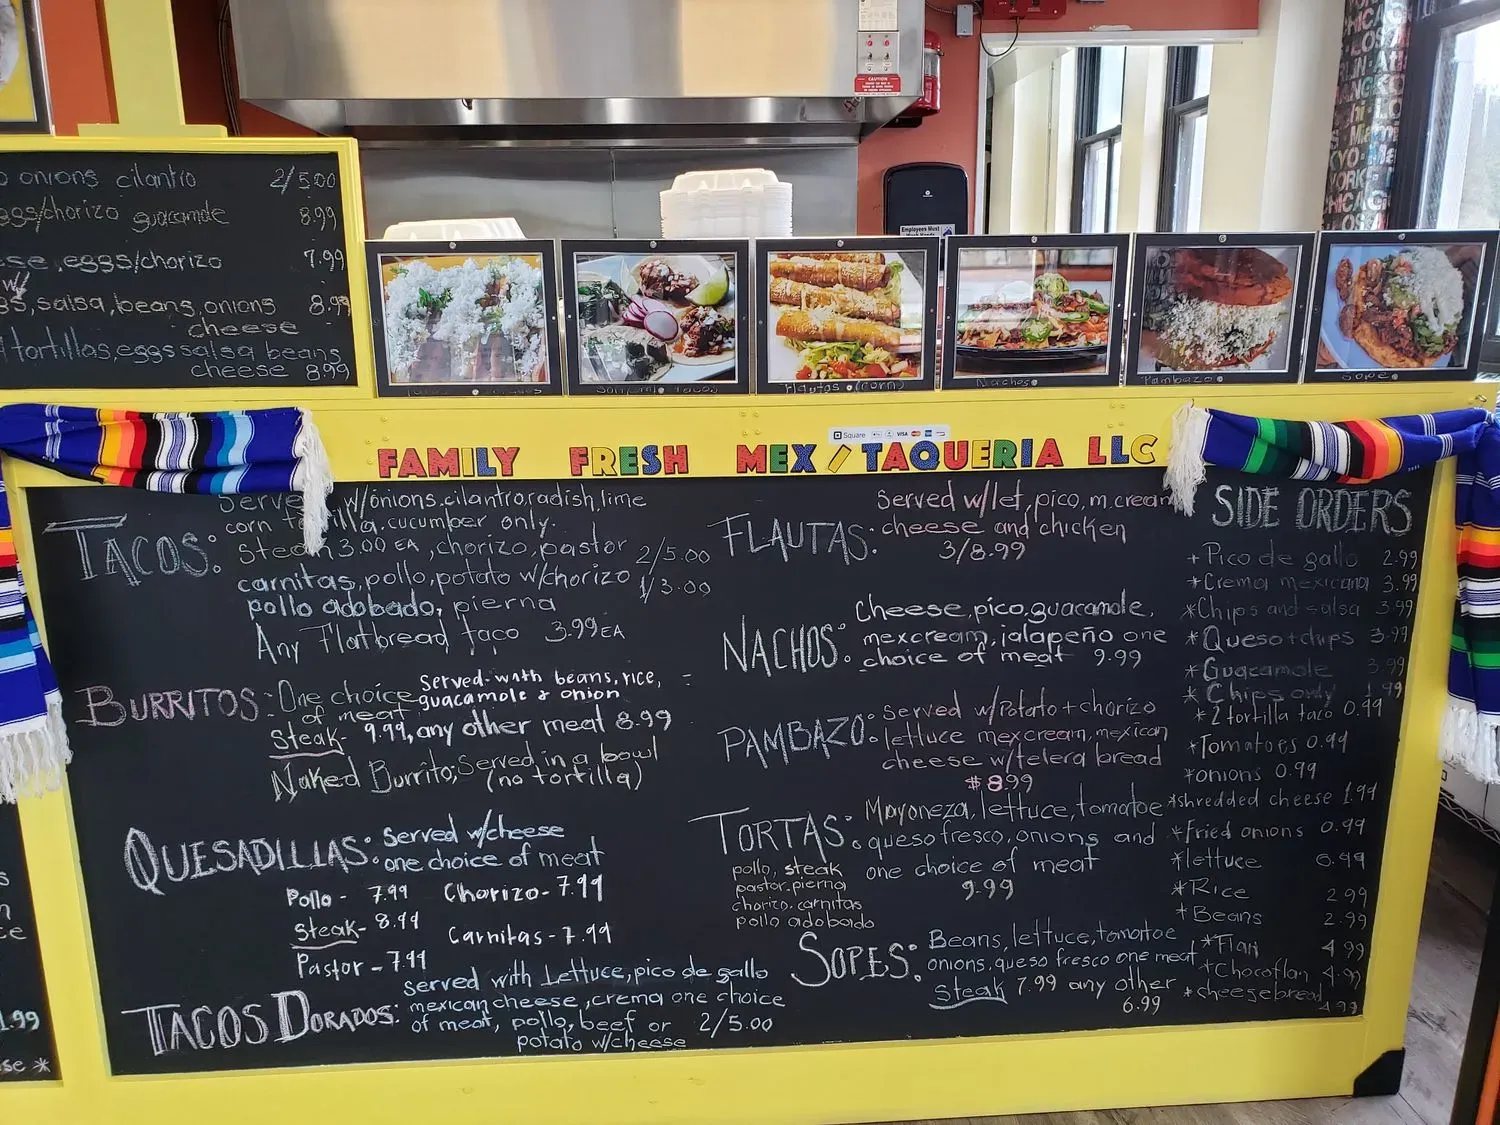 onions cilantro 2/5.00
eggs/chorizo guacamole 8.99
eggs/chorizo 7.99
salsa, beans, onions 8.99
cheese
tortillas, eggs salsa beans
cheese 8.99
CAUTION
Employees Must
Wash Hands
Flautas (corn)
Nachos
Pambazo
Sope
Square
VISA
FAMILY FRESH MEX / TAQUERIA LLC
TACOS:
Served w/onions, cilantro, radish, lime
corn tortilla, cucumber only.
Steak 3.00 EA, chorizo, pastor 2/5.00
carnitas, pollo, potato w/chorizo 1/3.00
pollo adobado, pierna
Any Flatbread taco 3.99 EA
BURRITOS - One choice of meat
Served with beans, rice,
guacamole & onion
Steak - 9.99, any other meat 8.99
Naked Burrito; Served in a bowl
(no tortilla)
QUESADILLAS: Served w/cheese
one choice of meat
Pollo - 7.99 Chorizo - 7.99
Steak - 8.99
Carnitas - 7.99
Pastor - 7.99
TACOS DORADOS:
Served with Lettuce, pico de gallo
mexican cheese, crema one choice
of meat, pollo, beef or 2/5.00
potato w/cheese
FLAUTAS:
Served w/let, pico, m.cream
cheese and chicken
3/8.99
NACHOS:
Cheese, pico, guacamole,
mexcream, jalapeño one
choice of meat 9.99
PAMBAZO:
Served w/Potato + chorizo
lettuce mexcream, mexican
cheese w/telera bread
$8.99
TORTAS:
Mayoneza, lettuce, tomatoe
queso fresco, onions and
one choice of meat
9.99
pollo, steak
pastor, pierna
chorizo, carnitas
pollo adobado
SOPES:
Beans, lettuce, tomatoe
onions, queso fresco one meat
Steak 7.99 any other
6.99
SIDE ORDERS
+ Pico de gallo 2.99
* Crema mexicana 3.99
* Chips and salsa 3.99
* Queso + chips 3.99
* Guacamole 3.99
* Chips only 1.99
* 2 tortilla taco 0.99
* Tomatoes 0.99
* onions 0.99
* shredded cheese 1.99
* Fried onions 0.99
* lettuce 0.99
* Rice 2.99
* Beans 2.99
* Flan 4.99
* Chocoflan 4.99
* cheesebread 4.99
1.99